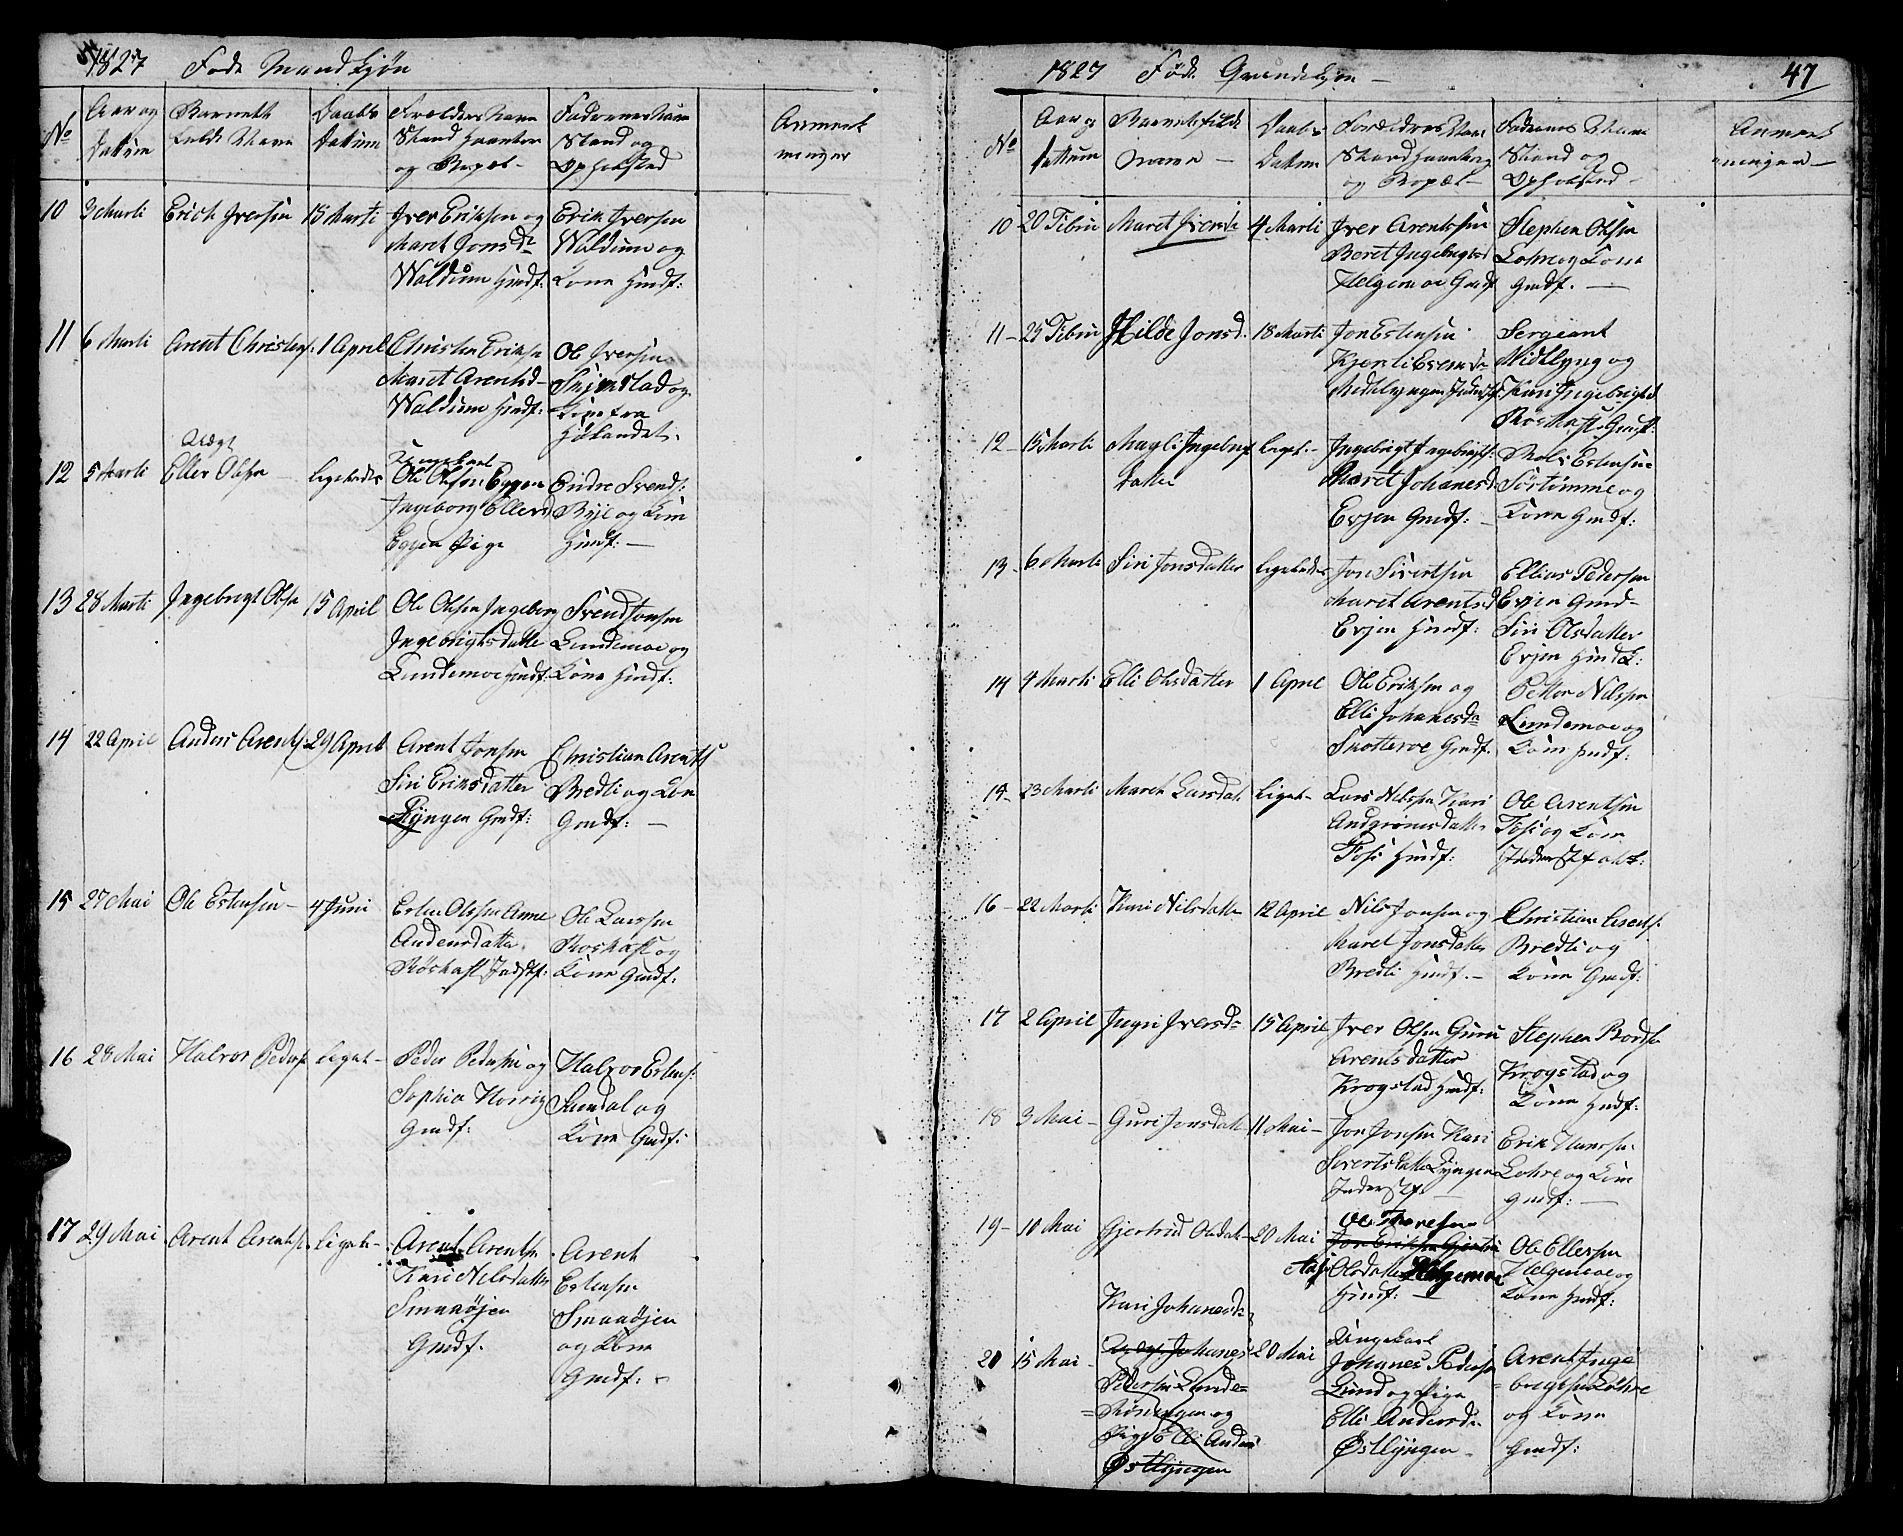 1827 Føde Mandkjøn
No
Aar og
Datum
Barnets
fulde Navn
Daabs
Datum
Forældres Navn
Stand Haandtering
og Bopæl -
Faddernes Navn
Stand og
Opholdsted
Anmærk
ninger
10 3 Marti Erich Iversen 18 Marti
Iver Eriksen og
Maret Jonsdr
Waldum Gmdf:
Erik Iversen
Waldum og
Kone Gmdf:
11 6 Marti Arent Christens: 1 April
Christen Eriksn
Maret Arentsd-
Waldum Gmdf:
Ole Iversen
og
Kone fra
Hølandet.
12 5 Marti
Uægt
Eller Olsen ligeledes
Ungekarl
Ole Olsen Eggen
Ingeborg Ellersd
Eggen Pige
Endre Svends:
Bye og Kone
Gmdf: -
13 28 Marti Ingebrigt Olsn 15 April
Ole Olsen Ingeborg
Ingebrigtsdatter
Lundemoe Gmdf:
Svend Jonsen
Lundemoe og
Kone Gmdf:
14 22 April Anders Arents: 29 April
Arent Jonsen
Siri Eriksdatter
Lyngen Gmdf:
Christian Arents
Bredli og Kone
Gmdf: -
15 27 Mai Ole Estensen - 4 Juni
Esten Olsen Anne
Andersdatter
Røskaft Indstf:
Ole Larsen
Røskaft og
Kone Gmdf:
16 28 Mai Halvor Peders: ligel-
Peder Pedersen og
Sophia Horrig
Gmdf:
Halvor Estens:
Skendal og
Kone Gmdf:
17 29 Mai Arent Arents: ligel-
Arent Arentsn
Kari Nilsdatter
Smaaøjen
Gmdf.
Arent
Estensen
Smaaøjen
og Kone
Gmdf: -
1827 Føde Qvindekjøn - 47
No
Aar og
Datum
Barnets fulde
navn -
Daabs
Datum
Forældres Navn
Stand Haandtering
og Bopæl -
Faddernes Navn
Stand og
Opholdsted -
Anmærk
ninger -
10 20 Febru Maret Iversdr 4 Marti
Iver Arentsen
Beret Ingebrigtsd
Helgemoe Gmdf
Stephen Olsen
Lohre og Kone
Gmdf. -
11 - 25 Febru Hilde Jonsd: 18 Marti
Jon Estensen
Kjersti Evensdr
Midtlyngen Inderstf:
Sergeant
Midtlyng og
Kari Ingebrigtsd
Røskaft Gmdf:
12 - 15 Marti Magli Ingebrigt
datter
ligel: -
Ingebrigt Ingebrigts:
Maret Johanesd:
Evjen Gmdf: -
Estensen
Sørtømme og
Kone Gmdf:
13 - 6 Marti Siri Jonsdatter ligeledes
Jon Sivertsen
Maret Arentsd
Evjen Gmdf:
Ellias Pedersen
Evjen Gmd-
Siri Olsdatter
Evjen Gmdk:
14 9 Marti Elli Olsdatter 1 April
Ole Eriksen og
Elli Johanesdr
Skotteroe Gmdf.
Petter Nilssen
Lundemoe og
Kone Gmdf:
15 - 23 Marti Maret Larsdatr ligel -
Lars Nilssen Kari
Andgrimsdatter
Fosse Gmdf:
Ole Arentsen
Fosse og Kone
16 - 22 Marti Kari Nilsdatter 12 April
Nils Jonsen og
Maret Jonsdatter
Bredli Gmdf. -
Christian Arents:
Bredli og
Kone Gmdf:
17 2 April Ingri Iversdr 15 April
Iver Olsen Guru
Arentsdatter
Krogstad Gmdf:
Stephen Bordsen
Krogstad og
Kone Gmdf:
18 3 Mai - Guri Jonsdatr 11 Mai -
Jon Jonsen Kari
Sivertsdatter Lyngen
Inderstf. -
Erik Hansen
Lohre og Kone
Gmdf: -
19 - 10 Mai Gjertrud Olsdatr - 20 Mai
Ole Thoresen
Jon Eriksen Gjertru
Olsdatter Helgemoe
Gmdf:
Ole Ellersen
Helgemoe og
Kone Gmdf:
20 15 Mai -
Kari Johanesdr
Uægt Johanes
Pedersen Lunde=
og
Pige Elli Anders
Østlyngen
20 Mai
Ungekarl
Johanes Pedersn
Lund og Pige
Elli Andersdr
Østlyngen -
Arent Inge
=brigtsen Lohre
og Kone
Gmdf: